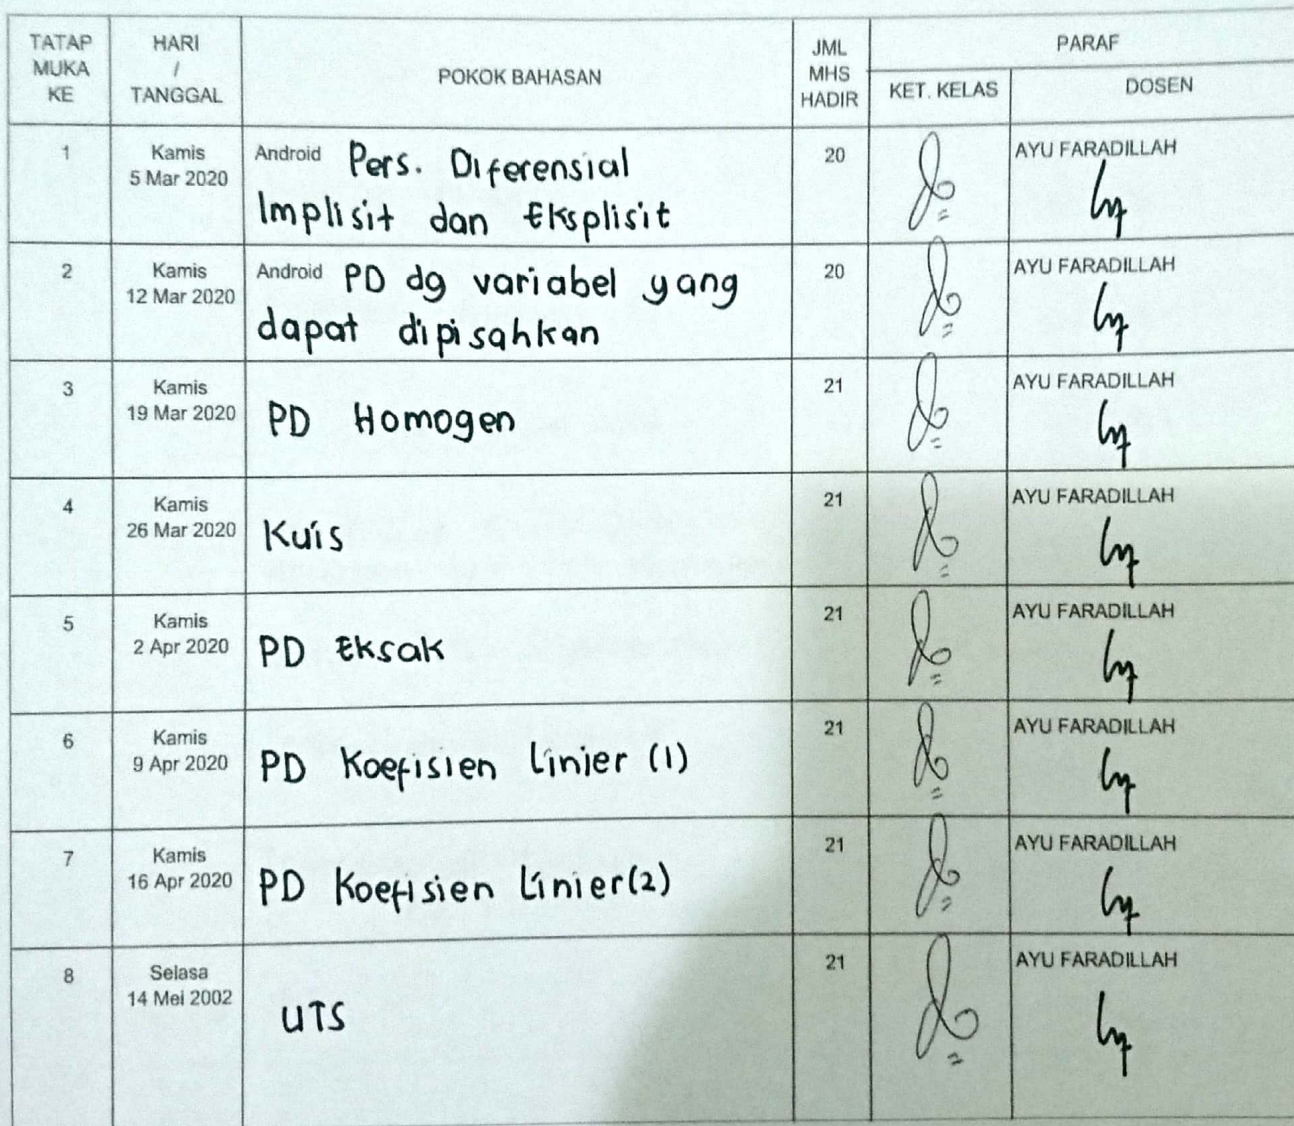 TATAP
MUKA
KE
HARI
/
TANGGAL
POKOK BAHASAN
JML
MHS
HADIR
PARAF
KET. KELAS
DOSEN
1
Kamis
5 Mar 2020
Android Pers. Diferensial
Implisit dan Eksplisit
20
AYU FARADILLAH
2
Kamis
12 Mar 2020
Android PD dg variabel yang
dapat dipisahkan
20
AYU FARADILLAH
3
Kamis
19 Mar 2020
PD Homogen
21
AYU FARADILLAH
4
Kamis
26 Mar 2020
Kuis
21
AYU FARADILLAH
5
Kamis
2 Apr 2020
PD Eksak
21
AYU FARADILLAH
6
Kamis
9 Apr 2020
PD Koefisien Linier (1)
21
AYU FARADILLAH
7
Kamis
16 Apr 2020
PD Koefisien Linier (2)
21
AYU FARADILLAH
8
Selasa
14 Mei 2002
UTS
21
AYU FARADILLAH